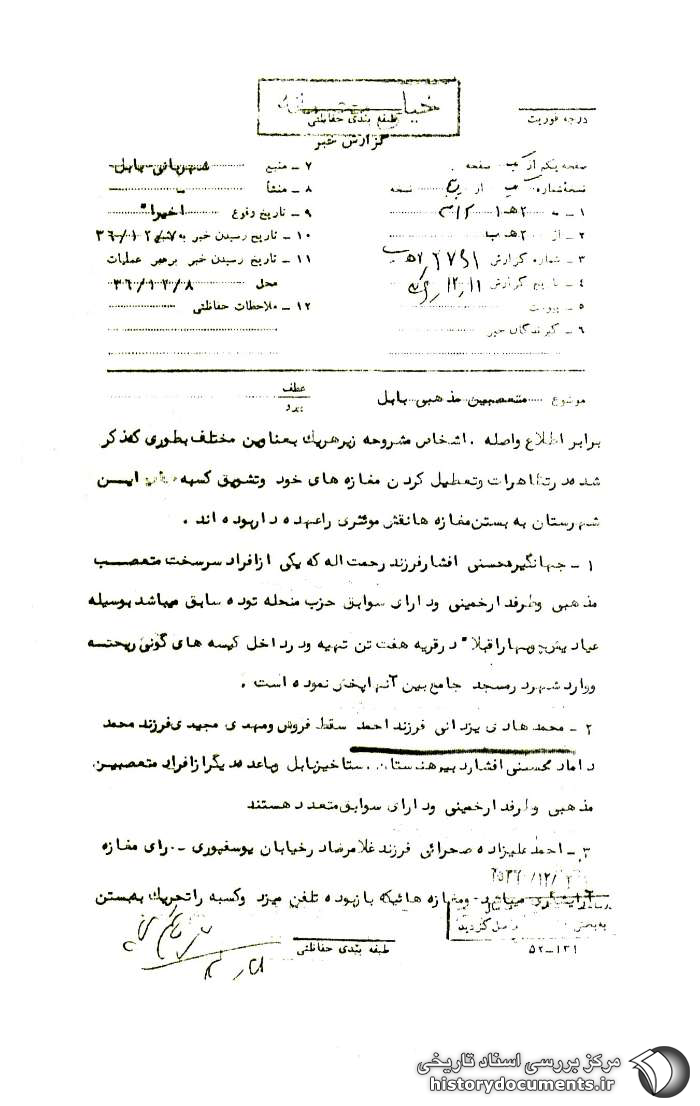 خیلی محرمانه
طبقه بندی حفاظتی
درجه فوریت
گزارش خبر
صفحه یکم از صفحه
نسخه شماره از نسخه
۱ ـ به ۲هـ۱ ۳۱۲
۲ ـ از ۲هـ ب
۳ ـ شماره گزارش
۴ ـ تاریخ گزارش
۵ ـ پیوست
۶ ـ گیرندگان خبر
۷ ـ منبع شهربانی بابل
۸ ـ منشأ ـ
۹ ـ تاریخ وقوع اخیرا"
۱۰ ـ تاریخ رسیدن خبر به منبع ۳۶/۱۲/۷
۱۱ ـ تاریخ رسیدن خبر برهبر عملیات
محل ۳۶/۱۲/۸
۱۲ ـ ملاحظات حفاظتی
موضوع متعصبین مذهبی بابل
عطف
پیرو
برابر اطلاع واصله ، اشخاص مشروحه زیر هریك بعناوین مختلف بطوری که ذکر
شده در تظاهرات وتعطیل کردن مغازه های خود وتشویق کسبه ایــن
شهرستان به بستن مغازه ها نقش موثری را عهده دار بوده اند .
۱ ـ جهانگیر محسنی افشار فرزند رحمت اله که یکی از افراد سرسخت متعصــب
مذهبی وطرفدار خمینی ودارای سوابق حزب منحله توده سابق میباشد بوسیله
قبلا" در قریه هفت تن تهیه ودر داخل کیسه های گونی ریختــه
ووارد شهر در مسجد جامع بین آنها پخش نموده است .
۲ ـ محمد هادی یزدانی فرزند احمد سقط فروش ومهدی مجیدی فرزند محمد
داماد محسنی افشار دبیر هنرستان رستاخیز بابل وعده دیگر از افراد متعصبین
مذهبی وطرفدار خمینی ودارای سوابق متعدد هستند
۳ ـ احمد علیزاده صحرائی فرزند غلامرضا در خیابان یوسفپوری دارای مغازه
میباشد ومغازه هائیکه باز بوده تلفن میزد وکسبه را تحریك به بستن
به بخش واصل گردید
طبقه بندی حفاظتی
۵۲ــ۱۲۱
مرکز بررسی اسناد تاریخی
historydocuments.ir